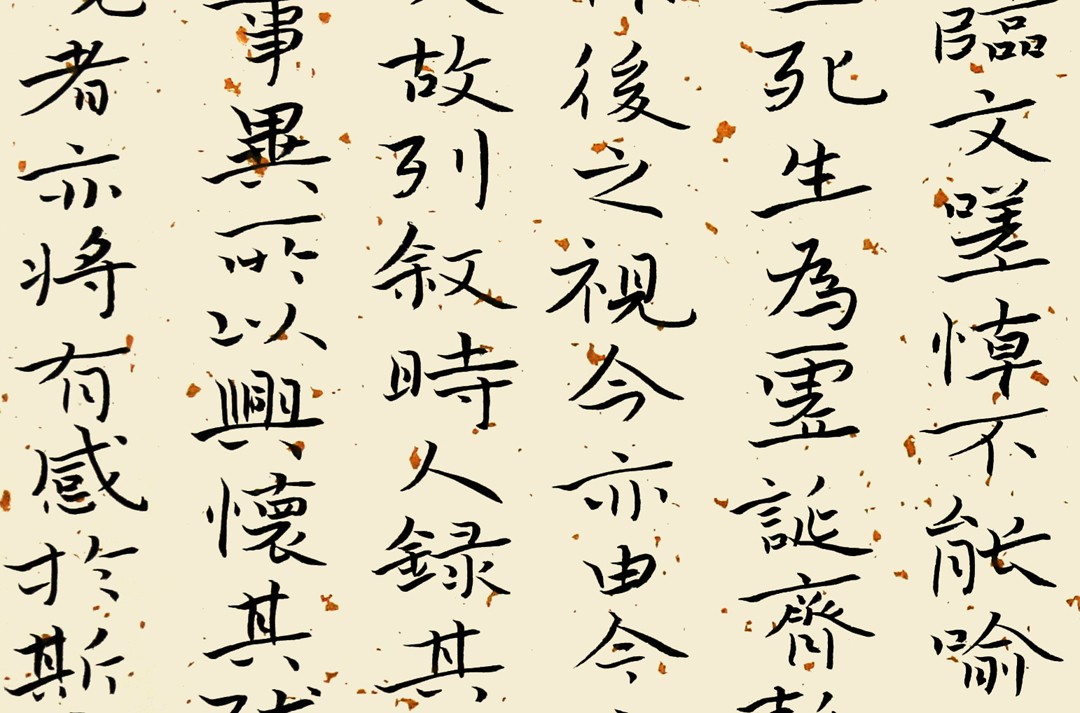 臨文嗟悼不能喻
死生為虛誕齊
後之視今亦由今
故列叙時人録其
事異所以興懷其
者亦將有感於斯